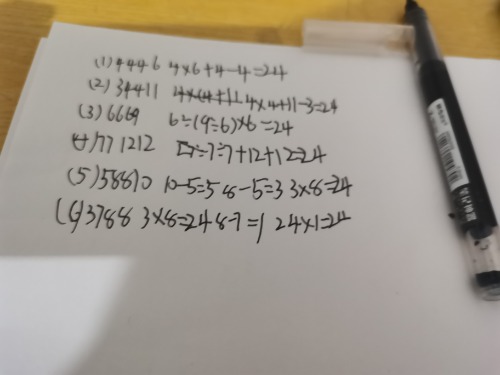 (1) 4446 4×6+4-4=24
(2) 34411 4×4+11-3=24
(3) 6669 6÷(9÷6)×6=24
(4) 771212 7÷7+12+12=24
(5) 58810 10-5=5 8-5=3 3×8=24
(6) 3788 3×8=24 8-7=1 24×1=24